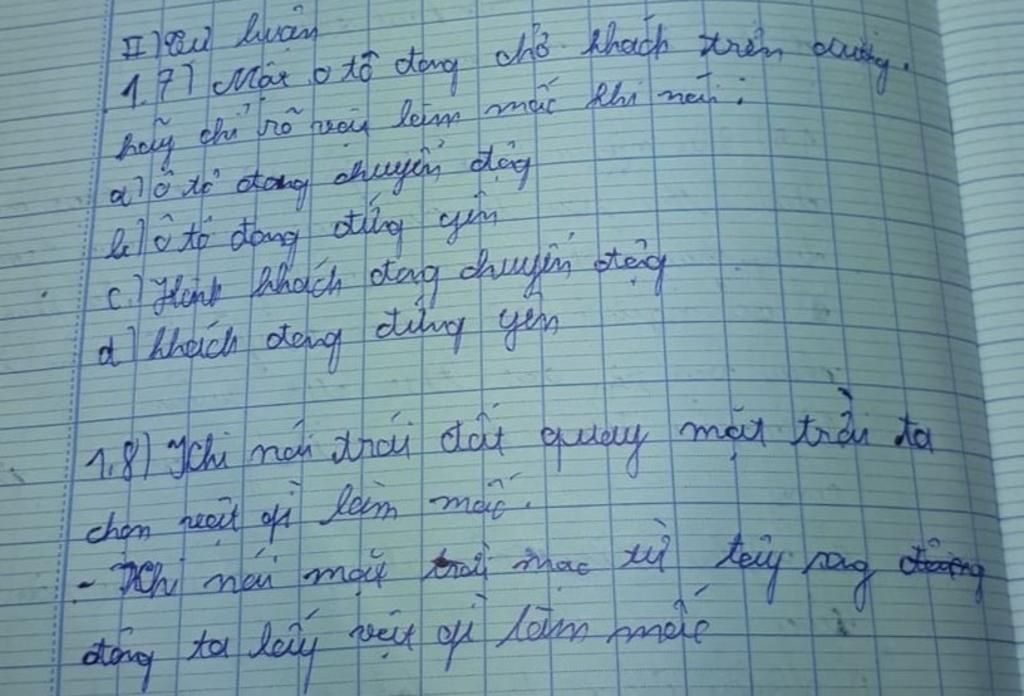 II) Tự luận
1.7) Một ô tô đang chở khách trên đường.
hãy chỉ rõ vật làm mốc khi nói:
a) ô tô đang chuyển động
b) ô tô đang đứng yên
c) Hành khách đang chuyển động
d) khách đang đứng yên
1.8) Khi nói trái đất quay mặt trời ta
chọn vật gì làm mốc.
- Khi nói mặt trời mọc từ tây sang
đông ta lấy vật gì làm mốc